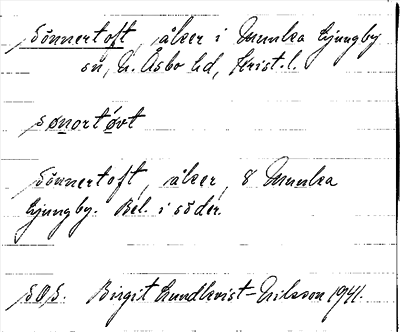 Sönnertoft, åker i Munka Ljungby
sn, N. Åsbo hd, Krist. l.
sønort ǿvt
Sönnertoft, åker, 8 Munka
Ljungby. Bel. i söder.
SOS. Birgit Lundkvist-Nilsson 1941.